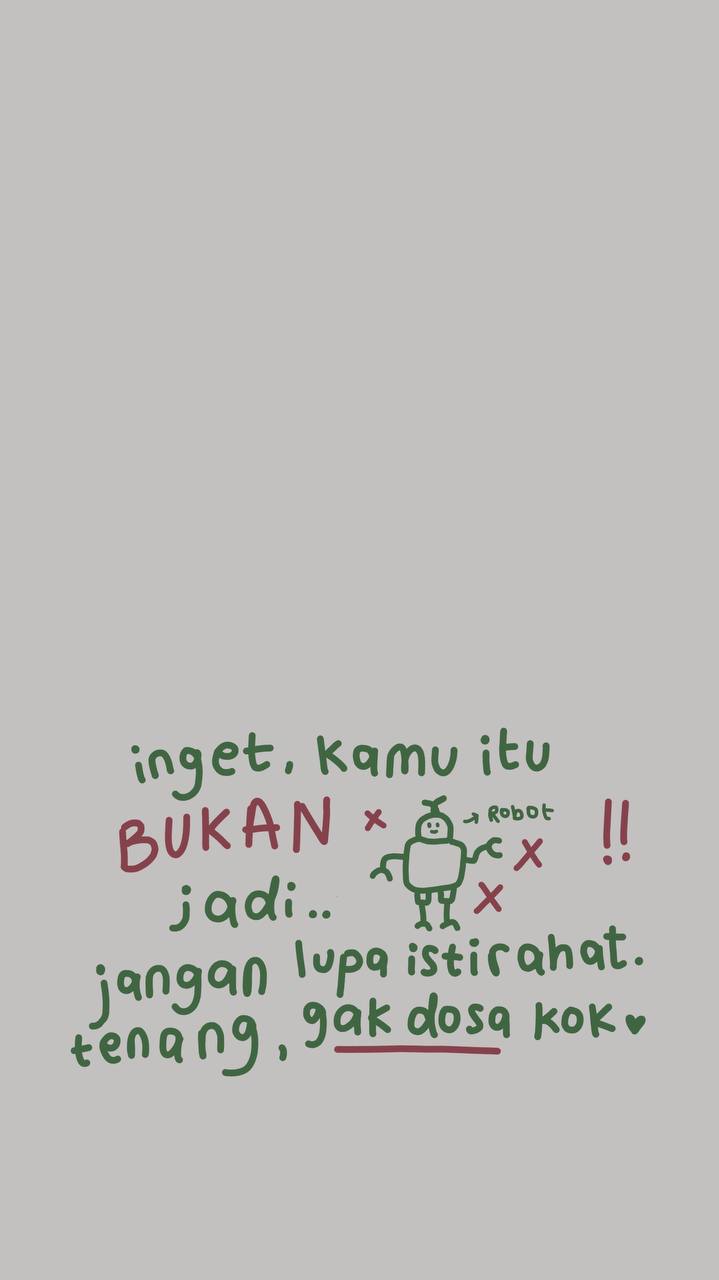 inget, kamu itu
BUKAN x → Robot x !!
x
jadi..
jangan lupa istirahat.
tenang, gak dosa kok ♥